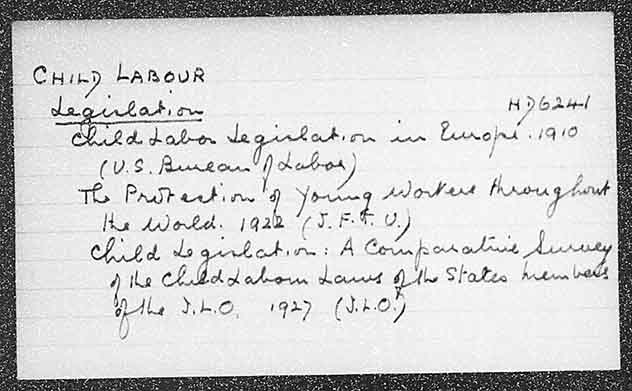 CHILD LABOUR
Legislation HD6241
Child Labor Legislation in Europe. 1910
(U.S. Bureau of Labor)
The Protection of Young Workers throughout
the World. 1922 (I.F.T.U.)
Child Legislation: A Comparative Survey
of the Child Labour Laws of the States members
of the I.L.O. 1927 (I.L.O.)